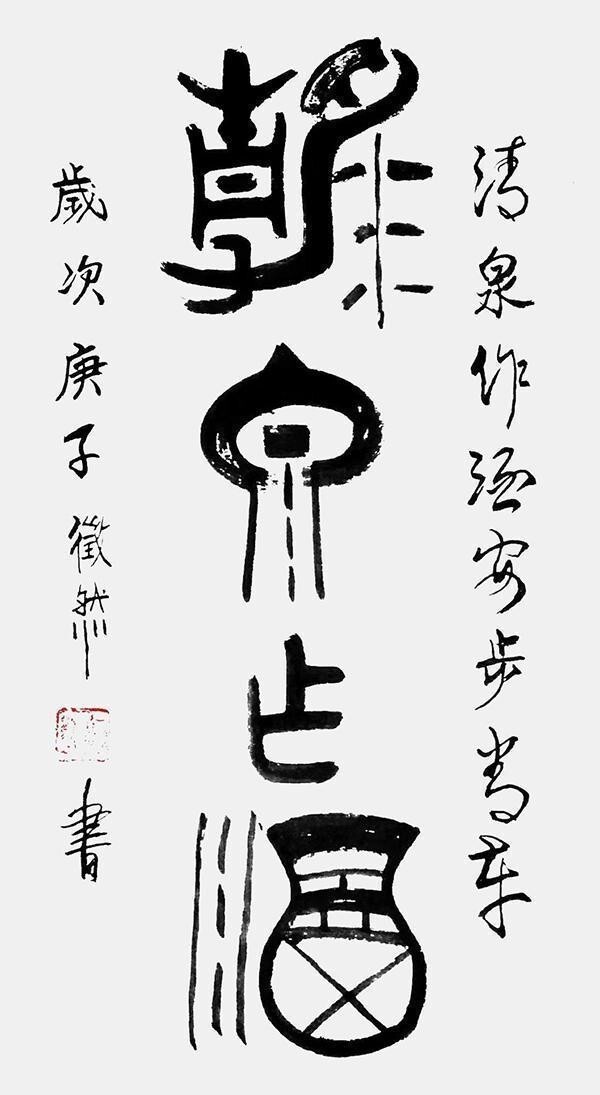 清泉作酒安步当车
泉止酒
歲次庚子徵然書